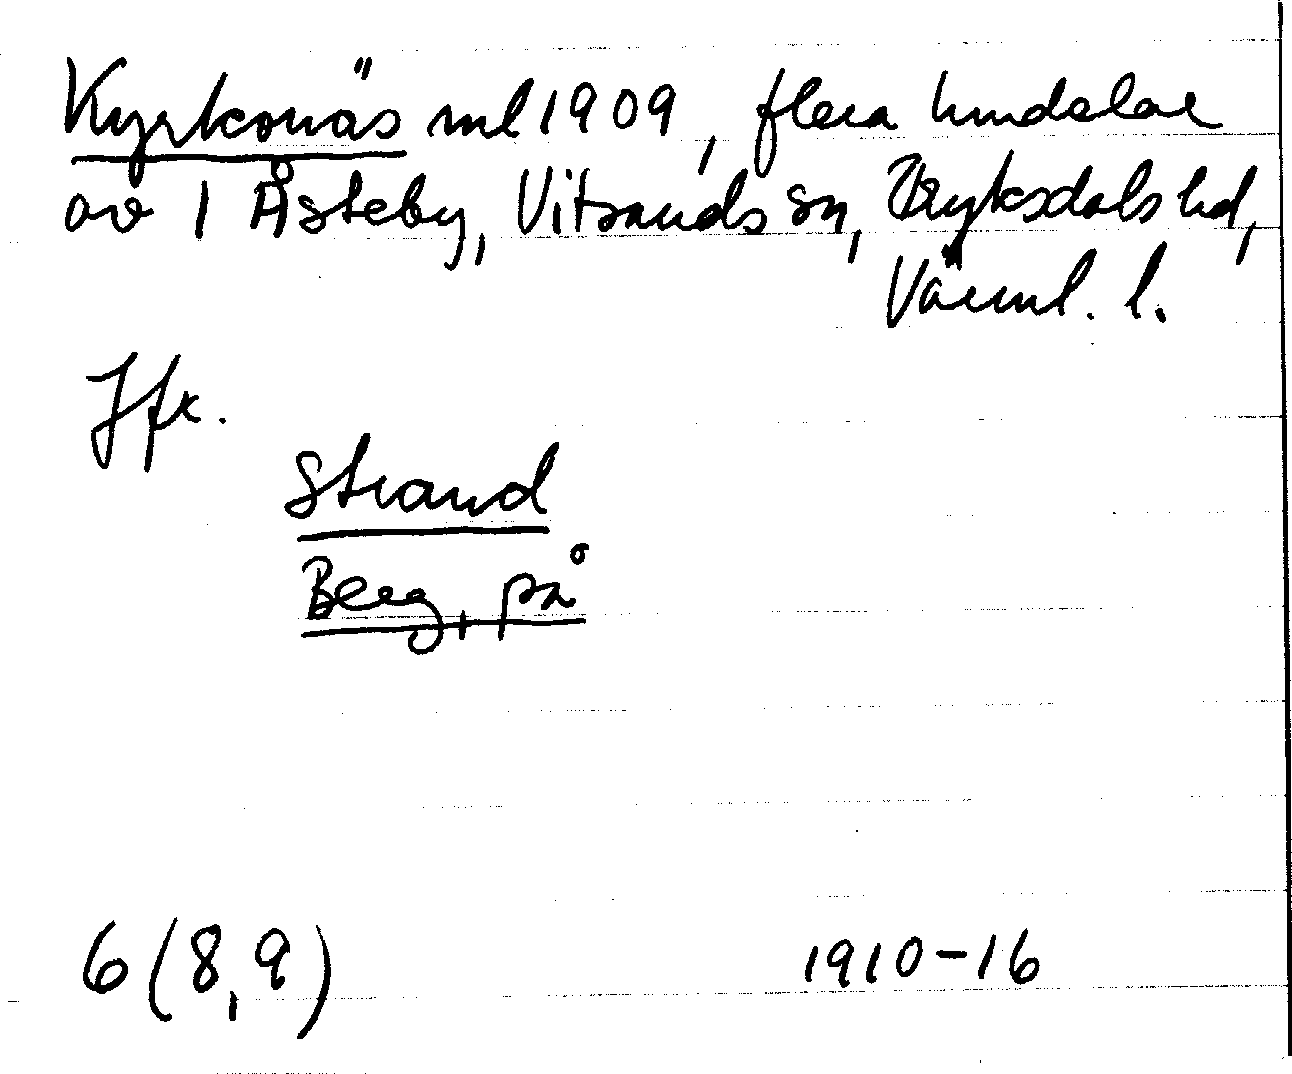 Kyrkonäs ml 1909, flera hmdelar
av 1 Åsteby, Vitsands sn, Fryksdals hd,
Värml. l.
Jfr.
Strand
Berg, på
6 (8,9)
1910-16